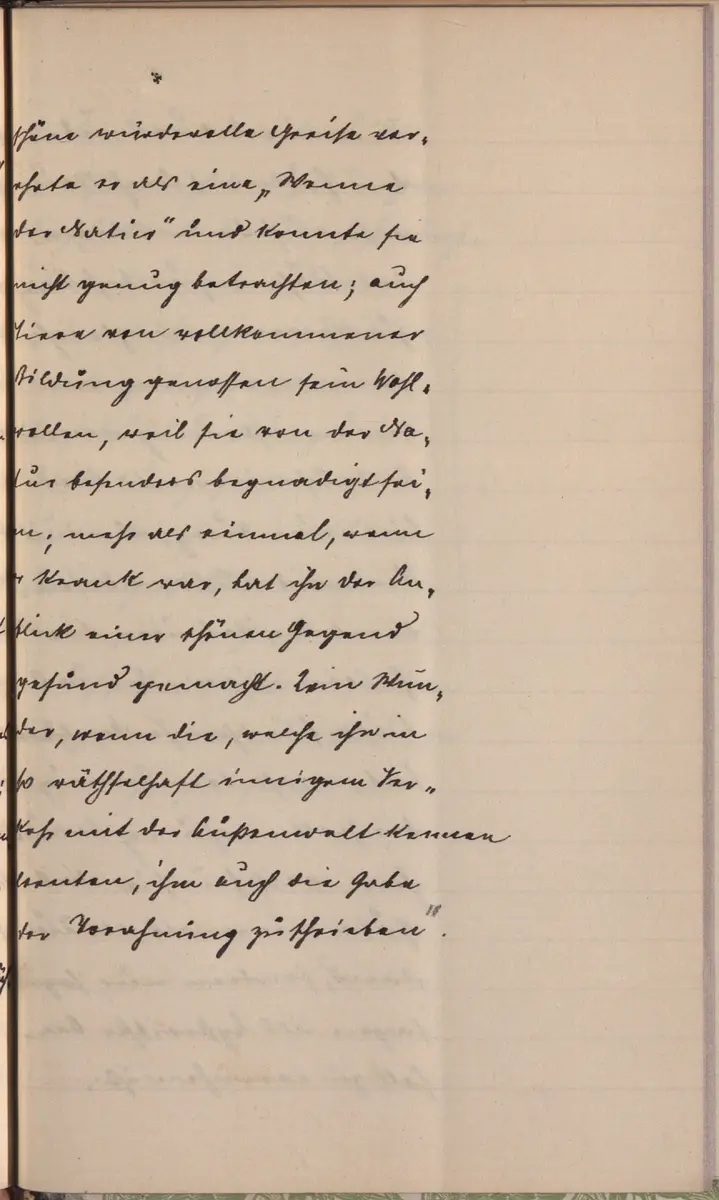 schöne würdevolle Greise ver-
ehrte er als eine „Wonne
der Natur" und konnte sie
nicht genug betrachten; auch
Tiere von vollkommener
Bildung genossen sein Wohl-
wollen, weil sie von der Na-
tur besonders begnadigt sei-
en; mehr als einmal, wenn
er krank war, hat ihn der An-
blick einer schönen Gegend
gesund gemacht. Kein Wun-
der, wenn die, welche ihn in
so räthselhaft innigem Ver-
kehr mit der Außenwelt kennen
lernten, ihm auch die Gabe
der Vorahnung zuschrieben".